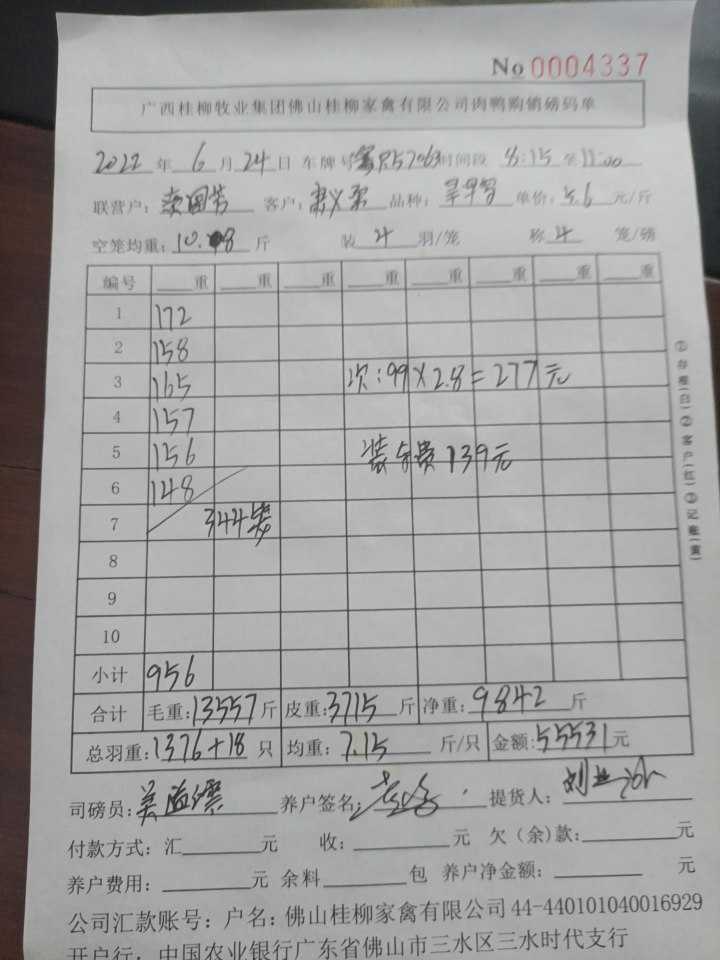 No 0004337
广西桂柳牧业集团佛山桂柳家禽有限公司肉鸭购销磅码单
2022 年 6 月 24 日 车牌号 R57063 时间段 8:15 至 11:00
联营户: 客户: 品种: 单价: 5.6 元/斤
空笼均重: 10.8 斤 装 4 羽/笼 称 4 笼/磅
编号 重 重 重 重 重 重 重 重
1 172
2 158
3 165 次:99×2.8=277元
4 157
5 156 装车费139元
6 148
7 344笼
8
9
10
小计 956
合计 毛重:13557斤 皮重:3715斤 净重:9842斤
总羽重:1376+18只 均重:7.15斤/只 金额:55531元
司磅员: 养户签名: 提货人:
付款方式:汇 元 收: 元 欠(余)款: 元
养户费用: 元 余料 包 养户净金额: 元
公司汇款账号:户名:佛山桂柳家禽有限公司 44-440101040016929
开户行:中国农业银行广东省佛山市三水区三水时代支行
①存根(白)②客户(红)③记账(黄)